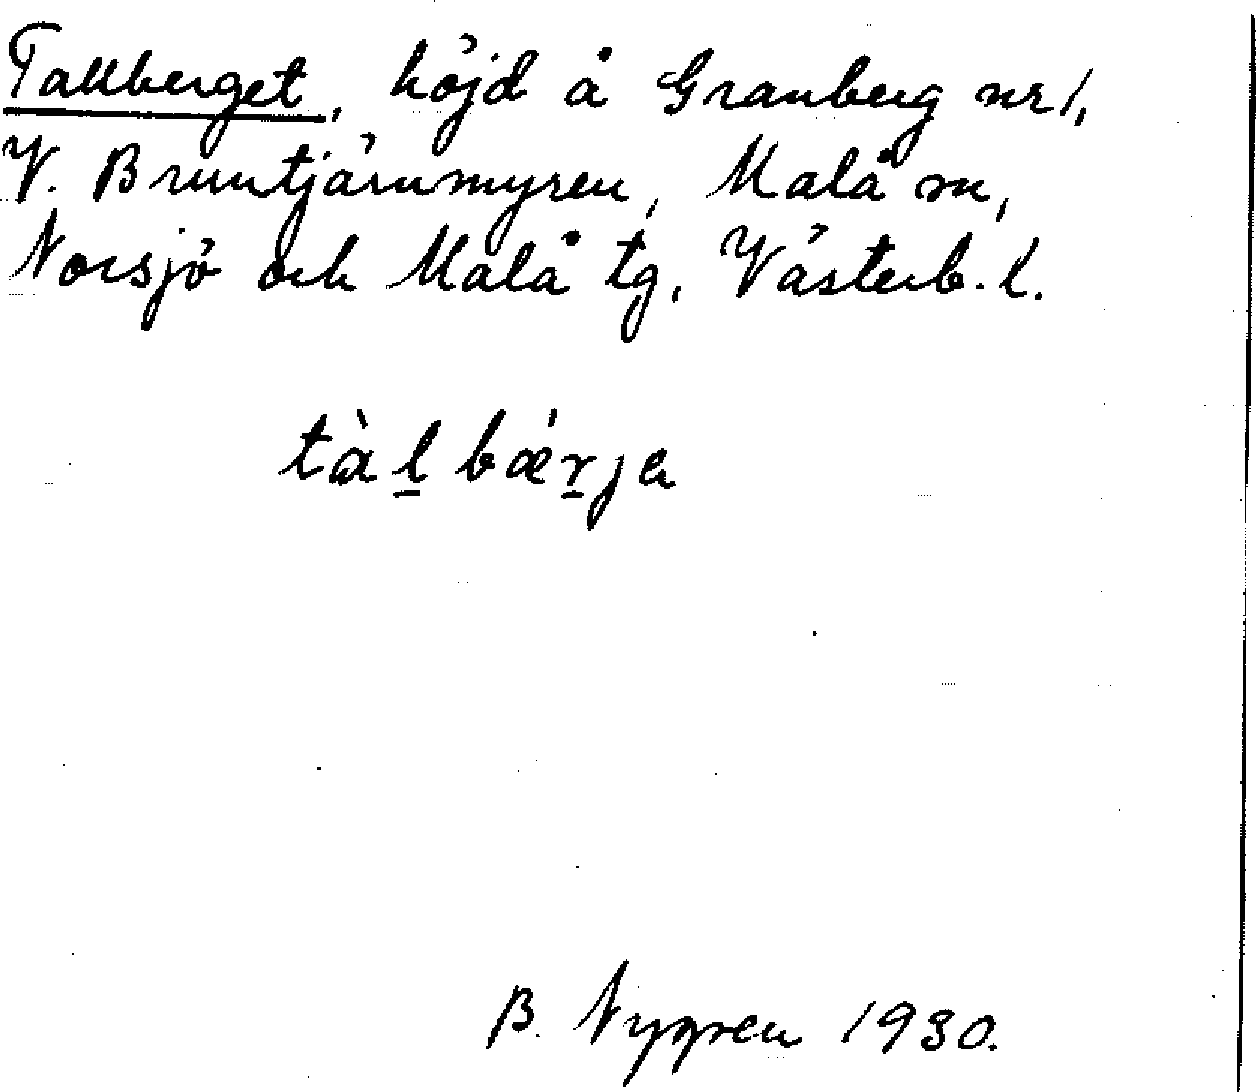 Tallberget, höjd å Granberg nr 1,
V. Bruntjärnmyren, Malå sn,
Norsjö och Malå tg, Västerb. l.
tàl̲ bǽr̲ja
B. Nygren 1930.